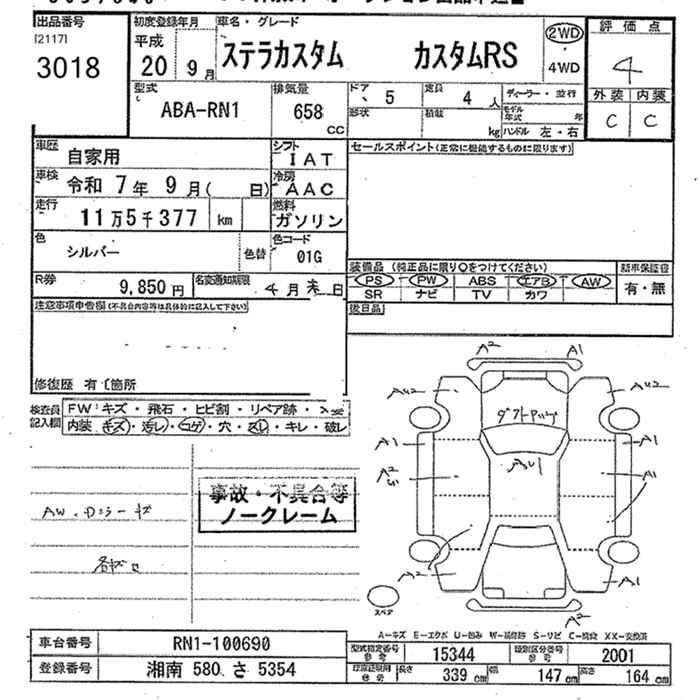 出品番号 初度登録年月 車名・グレード 評価点
[2117] 平成
3018 20年 9月 ステラカスタム カスタムRS 2WD 4
4WD
型式 排気量 ドア 定員 ディーラー・並行 外装 内装
ABA-RN1 658 5 4人 モデル年式 年 C C
cc 形状 積載 kg ハンドル 左・右
車歴 自家用 シフト IAT セールスポイント(正常に機能するものに限ります)
車検 令和 7年 9月( 日) 冷房 AAC
走行 11万5千377 km 燃料 ガソリン
色 シルバー 色替 色コード 01G
装備品 (純正品に限り○をつけてください) 新車保証書
R券 9,850円 名変通知期限 4月末日 PS PW ABS エアB AW 有・無
SR ナビ TV カワ
注意事項申告欄(不具合内容等は具体的に記入して下さい) 後日品
修復歴 有〔箇所
検査員 FW:キズ・飛石・ヒビ割・リペア跡・
記入欄 内装 キズ・汚レ・コゲ・穴・・キレ・破レ
A2 A1
AU2 AU2
ダクトパリ
A1 A1
A2 AU1 A1
事故・不具合等
ノークレーム
AW.
A2 A1
スペア A2
A-キズ E-エクボ U-凹み W-補修跡 S-サビ C-腐食 XX-交換済
車台番号 RN1-100690 型式指定番号 15344 類別区分番号 2001
登録番号 湘南 580 さ 5354 長さ 339cm 幅 147cm 高さ 164cm